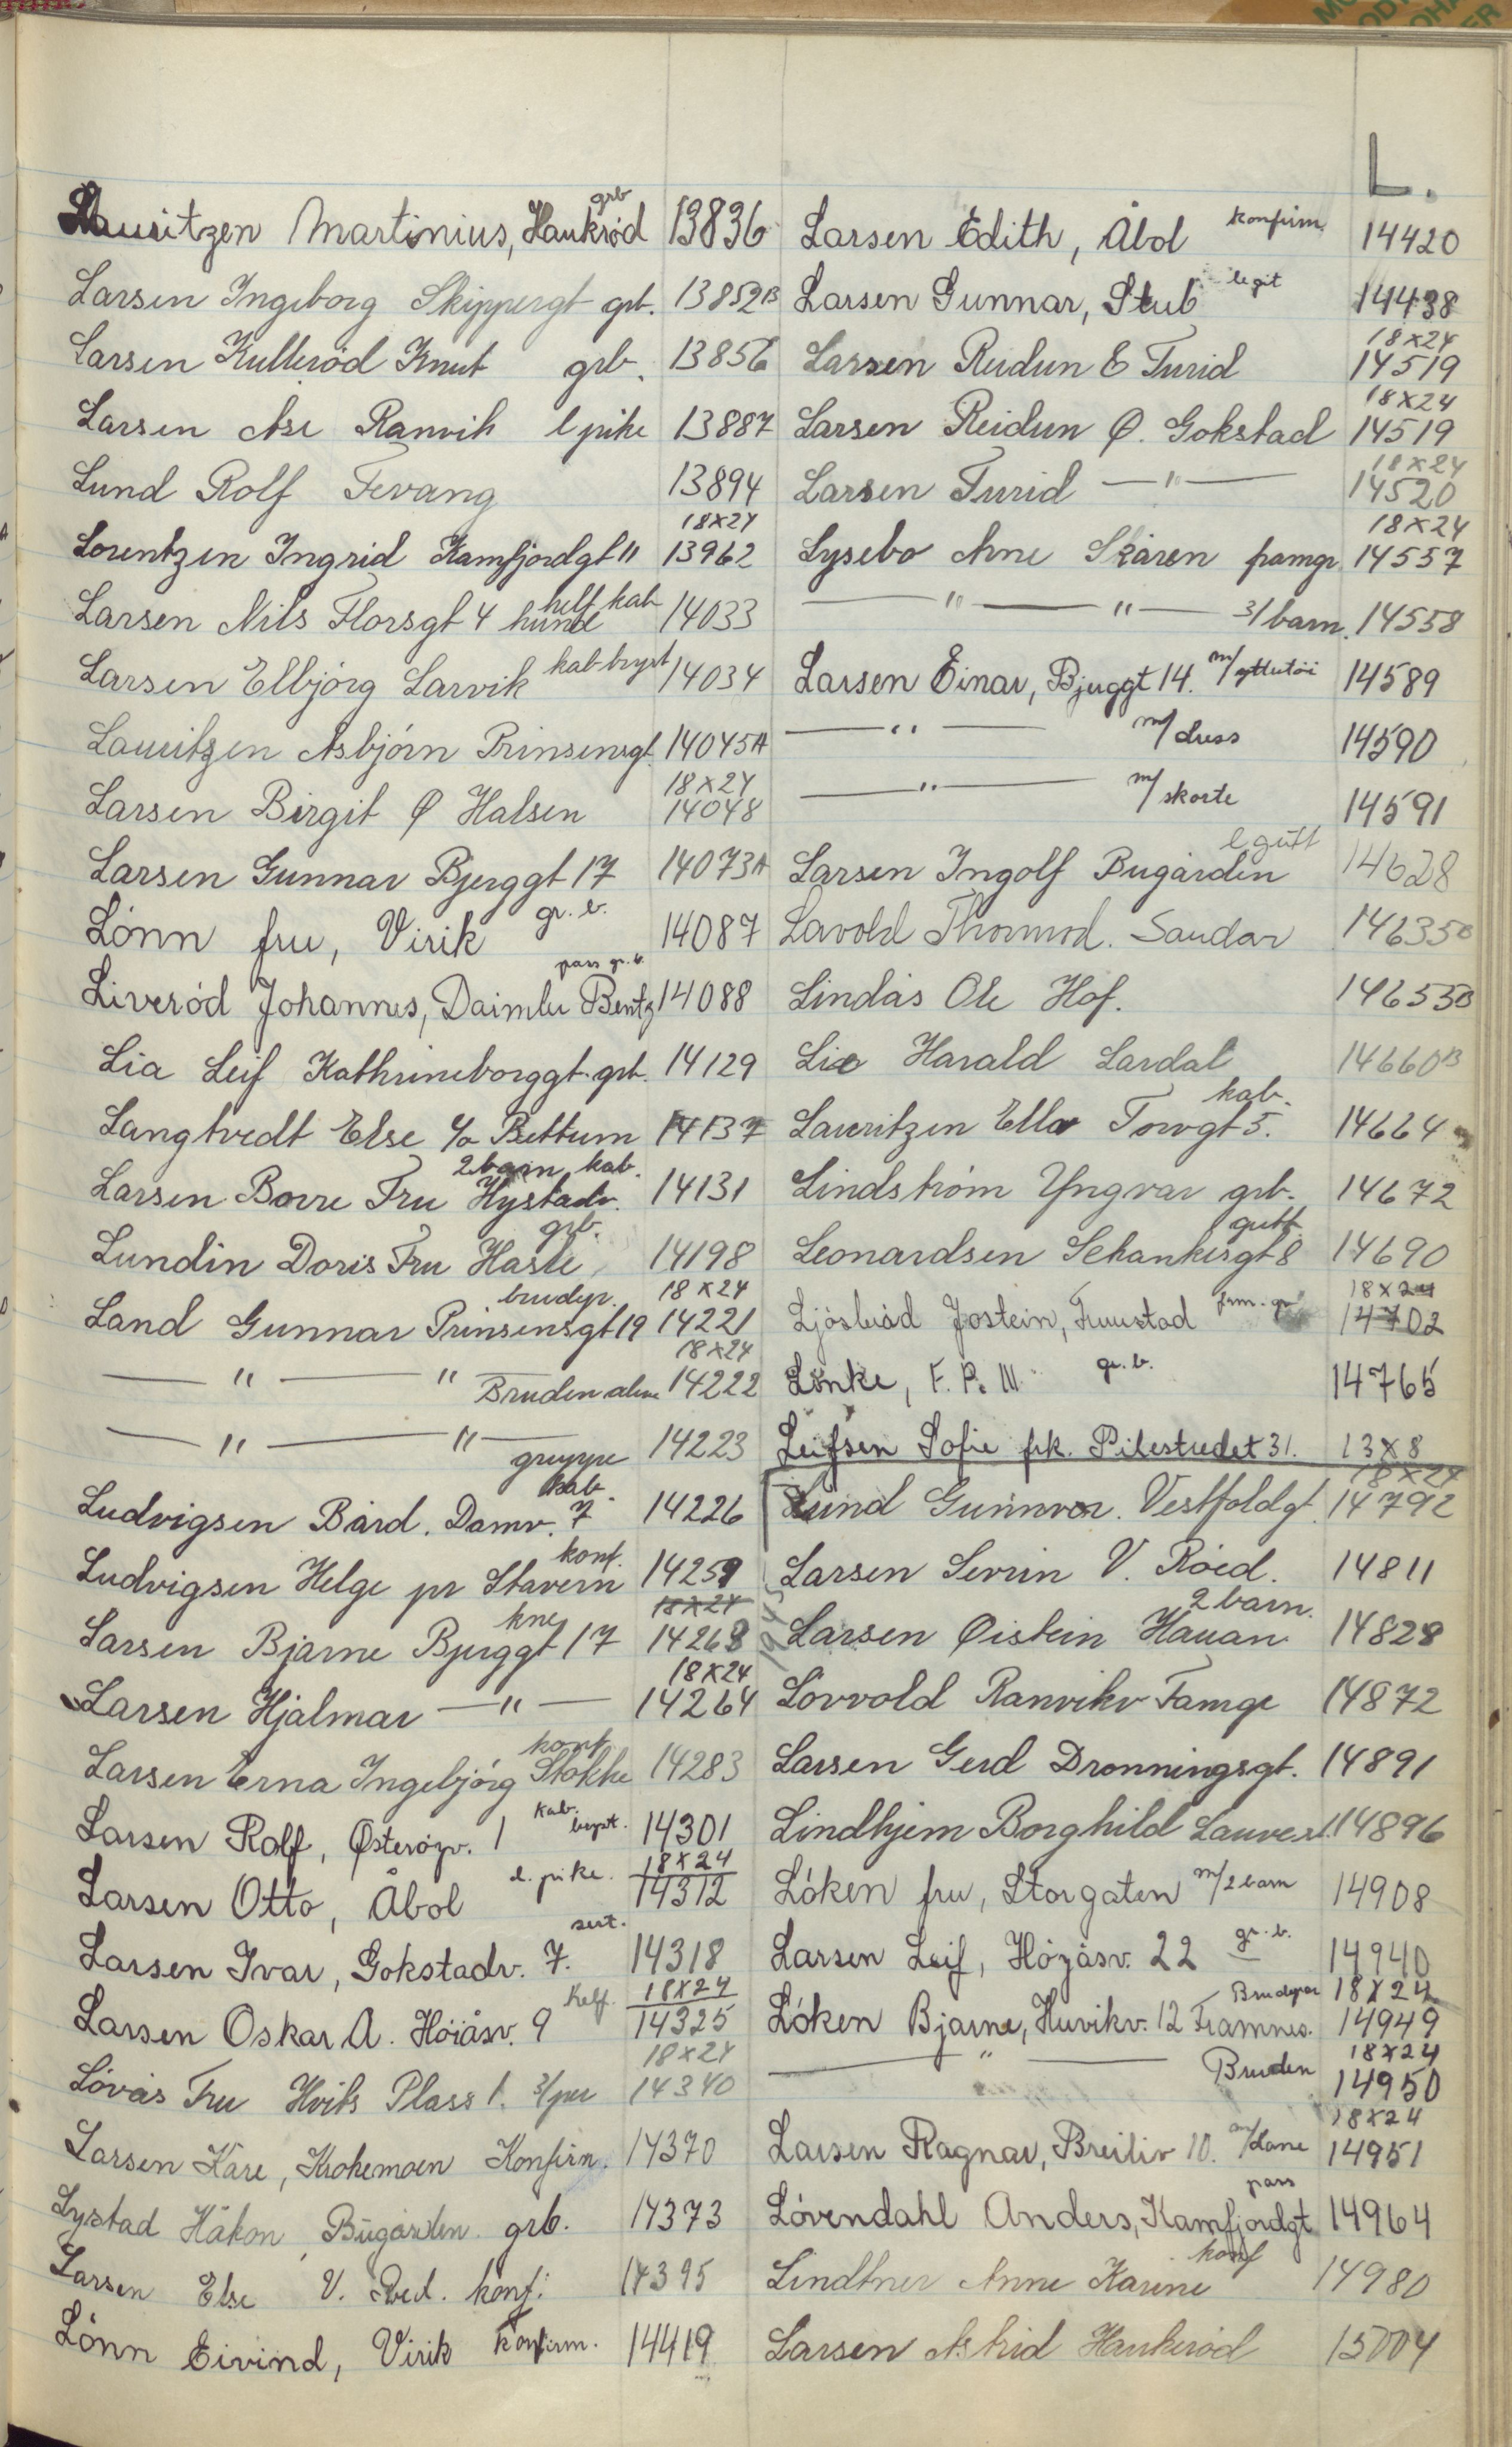 L.
Lauritzen Martinius, Haukrød grb 13836
Larsen Ingeborg Skippergt grb. 13852B
Larsen Kullerød Knut grb. 13856
Larsen Åse Ranvik l pike 13887
Lund Rolf Fevang 13894
Lorentzen Ingrid Kamfjordgt 11 18x24 13962
Larsen Nils Florsgt 4 hunde helf kab 14033
Larsen Elbjørg Larvik kab bryst 14034
Lauritzen Asbjørn Prinsensgt. 14045A
Larsen Birgit Ø Halsen 18x24 14048
Larsen Gunnar Bjerggt 17 14073A
Lønn fru, Virik gr. b. 14087
Liverød Johannes, Daimler Bentz pass gr. b. 14088
Lia Leif Kathrineborggt. grb. 14129
Langtvedt Else c/o Bettum 14137
Larsen Borre Fru Hystadv. 2 barn kab. 14131
Lundin Doris Fru Hasle grb. 14198
Land Gunnar Prinsensgt 19 brudep. 18x24 14221
— " — " Bruden alene 18x24 14222
— " — " — gruppe 14223
Ludvigsen Bård. Damv. 7 kab. 14226
Ludvigsen Helge pr Stavern konf. 14259
Larsen Bjarne Bjerggt 17 kne 18x24 14268
Larsen Hjalmar — " — 18x24 14264
Larsen Erna Ingebjørg Stokke konf 14283
Larsen Rolf, Østerøyv. 1 kab. bryst. 14301
Larsen Otto, Åbol l. pike. 18x24 14312
Larsen Ivar, Gokstadv. 7. sert. 14318
Larsen Oskar A. Høiåsv. 9 Helf. 18x24 14325
Løvås Fru Hvits Plass 1. 3/per 18x24 14340
Larsen Kåre, Krokemoen Konfirm. 14370
Lystad Håkon, Bugården grb. 14373
Larsen Else V. Røed. konf. 14395
Lønn Eivind, Virik Konfirm. 14419
Larsen Edith, Åbol konfirm. 14420
Larsen Gunnar, Stub legit 14438
Larsen Reidun & Turid 18x24 14519
Larsen Reidun Ø. Gokstad 18x24 14519
Larsen Turid — " — 18x24 14520
Lysebo Arne Skåren famgr. 18x24 14557
— " — " — 3/barn. 14558
Larsen Einar, Bjerggt 14. m/yttertøi 14589
— " — m/dress 14590
— " — m/skorte 14591
Larsen Ingolf Bugården l gutt 14628
Lavold Thormod. Sandar 14635B
Lindås Ole Hof. 14653B
Lie Harald Lardal 14660B
Lauritzen Ella Torvgt 5. kab. 14664
Lindstrøm Yngvar grb. 14672
Leonardsen Schankesgt 8 gutt 14690
Ljøsbråd Jostein, Furustad fam. gr 18x24 14702
Lønke, F. P. M. gr. b. 14765
Leifsen Sofie frk. Pilestredet 31. 13x8
Lund Gunnvor. Vestfoldgt. 18x24 14792
1945
Larsen Sevrin V. Røed. 14811
Larsen Øistein Hauan 2 barn. 14828
Løvvold Ranvikv Famgr 14872
Larsen Gerd Dronningsgt. 14891
Lindhjem Borghild Lauvesl. 14896
Løken fru, Storgaten m/2 barn 14908
Larsen Leif, Høyåsv. 22 gr. b. 14940
Løken Bjarne, Huvikv. 12 Framnes. Brudepar 18x24 14949
— " — Bruden 18x24 14950
Larsen Ragnar, Breiliv 10. m/Lane 18x24 14951
Løvendahl Anders, Kamfjordgt pass 14964
Lindtner Anne Karine konf 14980
Larsen Astrid Haukerød 15004